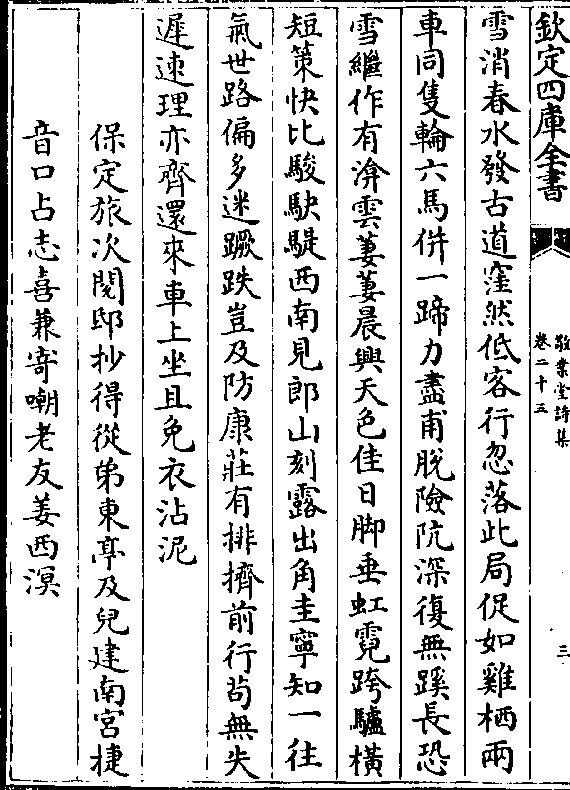 欽定四庫全書
敬業堂詩集
卷二十三
三
雪消春水發古道窪然低客行忽落此局促如雞栖兩
車同隻輪六馬併一蹄力盡甫脫險阬深復無蹊長恐
雪繼作有渰雲萋萋晨興天色佳日脚垂虹霓跨驢橫
短策快比駿駃騠西南見郎山刻露出角圭寧知一往
氣世路偏多迷蹶跌豈及防康莊有排擠前行苟無失
遲速理亦齊還來車上坐且免衣沾泥
保定旅次閱邸抄得從弟東亭及兒建南宮捷
音口占志喜兼寄嘲老友姜西溟